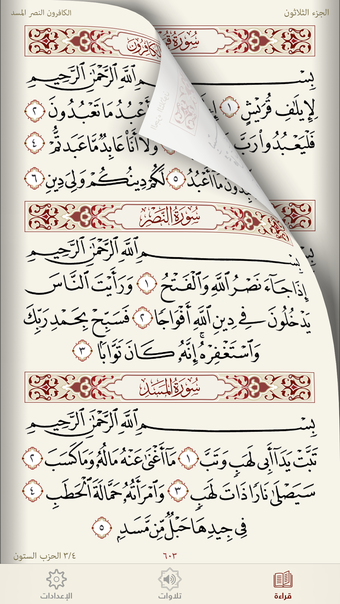 الجزء الثلاثون الكافرون النصر المسد
سُورَةُ
بِسْمِ ٱللَّهِ ٱلرَّحْمَٰنِ ٱلرَّحِيمِ
لِإِيلَٰفِ قُرَيْشٍ ١ أَعْبُدُ مَا تَعْبُدُونَ ٢
فَلْيَعْبُدُوا۟ رَبَّ وَلَآ أَنَا۠ عَابِدٌ مَّا عَبَدتُّمْ ٤
مَآ أَعْبُدُ ٥ لَكُمْ دِينُكُمْ وَلِىَ دِينِ ٦
سُورَةُ النَّصْرِ
بِسْمِ ٱللَّهِ ٱلرَّحْمَٰنِ ٱلرَّحِيمِ
إِذَا جَآءَ نَصْرُ ٱللَّهِ وَٱلْفَتْحُ ١ وَرَأَيْتَ ٱلنَّاسَ
يَدْخُلُونَ فِى دِينِ ٱللَّهِ أَفْوَاجًا ٢ فَسَبِّحْ بِحَمْدِ رَبِّكَ
وَٱسْتَغْفِرْهُ ۚ إِنَّهُۥ كَانَ تَوَّابًۢا ٣
سُورَةُ المَسَدِ
بِسْمِ ٱللَّهِ ٱلرَّحْمَٰنِ ٱلرَّحِيمِ
تَبَّتْ يَدَآ أَبِى لَهَبٍ وَتَبَّ ١ مَآ أَغْنَىٰ عَنْهُ مَالُهُۥ وَمَا كَسَبَ ٢
سَيَصْلَىٰ نَارًا ذَاتَ لَهَبٍ ٣ وَٱمْرَأَتُهُۥ حَمَّالَةَ ٱلْحَطَبِ ٤
فِى جِيدِهَا حَبْلٌ مِّن مَّسَدٍۭ ٥
٦٠٣ ٣/٤ الحزب الستون
قراءة تلاوات الإعدادات